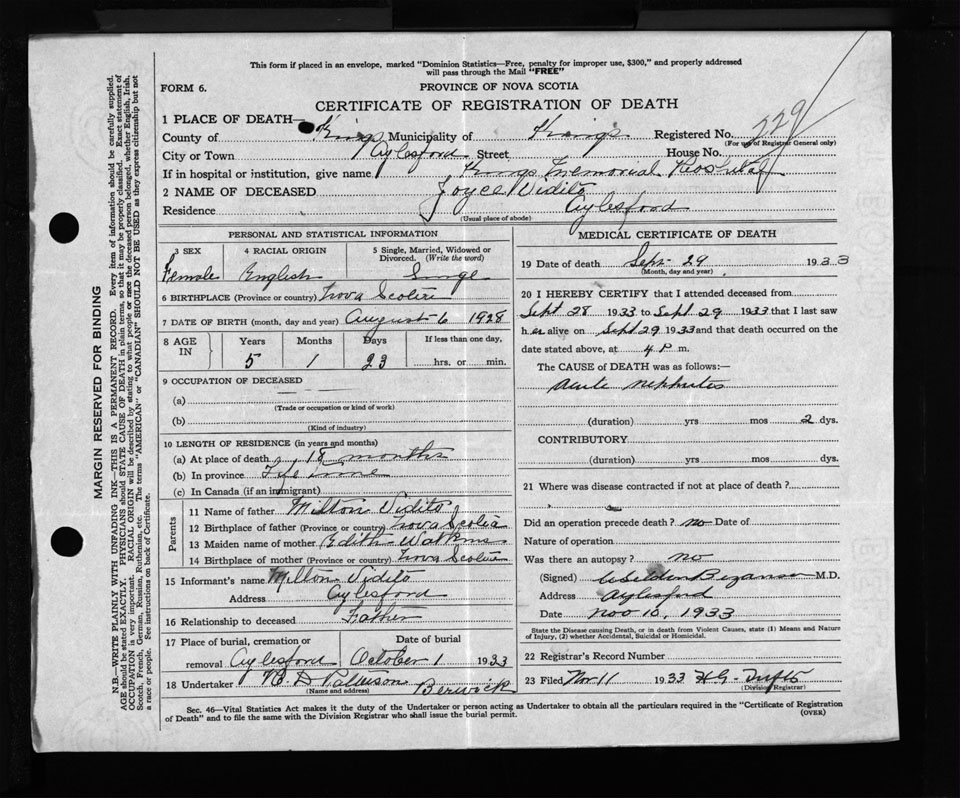 This form if placed in an envelope, marked "Dominion Statistics—Free, penalty for improper use, $300," and properly addressed
will pass through the Mail "FREE"
FORM 6.
PROVINCE OF NOVA SCOTIA
CERTIFICATE OF REGISTRATION OF DEATH
1 PLACE OF DEATH—
County of Kings Municipality of Kings Registered No. 229
(For use of Registrar General only)
City or Town Aylesford Street House No.
If in hospital or institution, give name Kings Memorial Hospital
2 NAME OF DECEASED Joyce Vidito
Residence Aylesford
(Usual place of abode)
PERSONAL AND STATISTICAL INFORMATION
3 SEX 4 RACIAL ORIGIN 5 Single, Married, Widowed or
Divorced. (Write the word)
Female English Single
6 BIRTHPLACE (Province or country) Nova Scotia
7 DATE OF BIRTH (month, day and year) August 6 1928
8 AGE IN Years Months Days If less than one day,
5 1 23 hrs. or min.
9 OCCUPATION OF DECEASED
(a)
(Trade or occupation or kind of work)
(b)
(Kind of industry)
10 LENGTH OF RESIDENCE (in years and months)
(a) At place of death 18 months
(b) In province Life Time
(c) In Canada (if an immigrant)
Parents
11 Name of father Milton Vidito
12 Birthplace of father (Province or country) Nova Scotia
13 Maiden name of mother Edith Watkins
14 Birthplace of mother (Province or country) Nova Scotia
15 Informant's name Milton Vidito
Address Aylesford
16 Relationship to deceased Father
17 Place of burial, cremation or Date of burial
removal Aylesford October 1 1933
18 Undertaker Berwick
(Name and address)
MEDICAL CERTIFICATE OF DEATH
19 Date of death Sept 29 1933
(Month, day and year)
20 I HEREBY CERTIFY that I attended deceased from
Sept 28 1933 to Sept 29 1933 that I last saw
her alive on Sept 29 1933 and that death occurred on the
date stated above, at 4 P m.
The CAUSE of DEATH was as follows:—
acute nephritis
(duration) yrs mos 2 dys.
CONTRIBUTORY
(duration) yrs mos dys.
21 Where was disease contracted if not at place of death?
Did an operation precede death? no Date of
Nature of operation
Was there an autopsy? no
(Signed) M.D.
Address Aylesford
Date Nov 10, 1933
State the Disease causing Death, or in death from Violent Causes, state (1) Means and Nature
of Injury, (2) whether Accidental, Suicidal or Homicidal.
22 Registrar's Record Number
23 Filed Nov 11 1933
(Division Registrar)
Sec. 46—Vital Statistics Act makes it the duty of the Undertaker or person acting as Undertaker to obtain all the particulars required in the "Certificate of Registration
of Death" and to file the same with the Division Registrar who shall issue the burial permit.
(OVER)
MARGIN RESERVED FOR BINDING
N.B.—WRITE PLAINLY WITH UNFADING INK—THIS IS A PERMANENT RECORD. Every item of information should be carefully supplied.
AGE should be stated EXACTLY. PHYSICIANS should STATE CAUSE OF DEATH in plain terms, so that it may be properly classified. Exact statement of
OCCUPATION is very important. RACIAL ORIGIN will be described by stating to what people or race the deceased person belonged, whether English, Irish,
Scotch, French, German, Russian, Ruthenian, etc. The terms "AMERICAN" or "CANADIAN" SHOULD NOT BE USED as they express citizenship but not
a race or people. See instructions on back of Certificate.